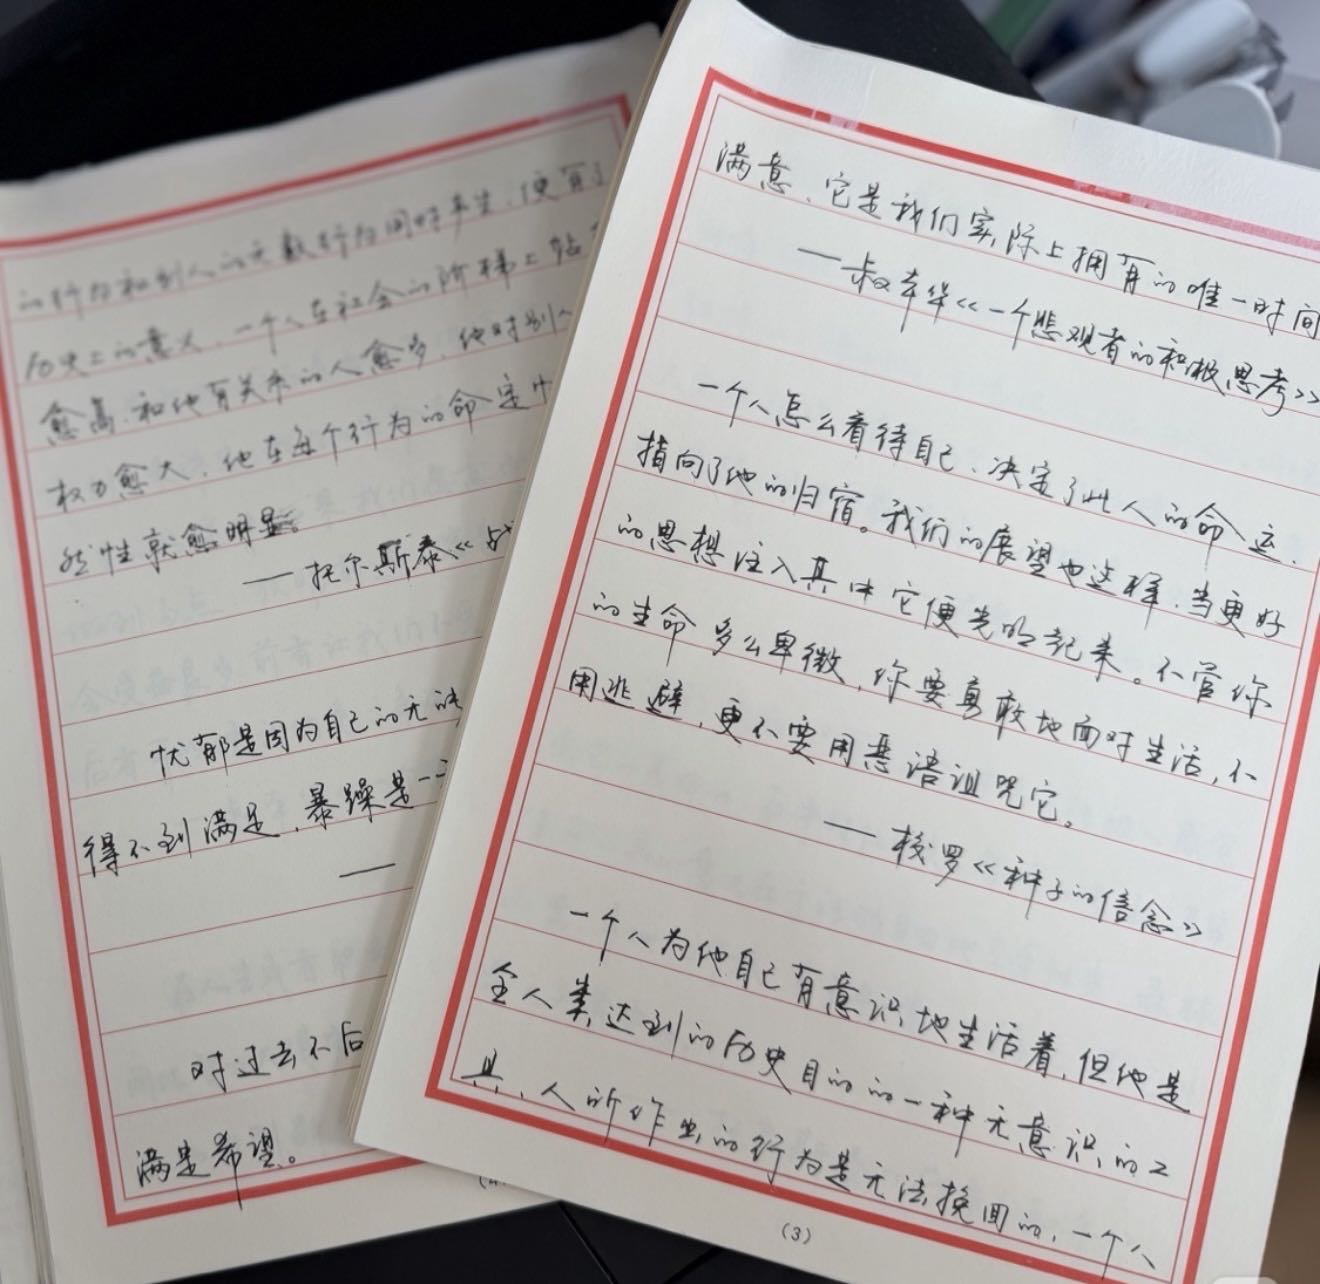 的行为和别人的无数行为同时产生，便有了
历史上的意义，一个人在社会的阶梯上站
愈高，和他有关系的人愈多，他对别人
权力愈大，他在每个行为的命定
然性就愈明显。
——托尔斯泰《战
忧郁是因为自己的无
得不到满足，暴躁是一
——
对过去不后
满是希望。
满意，它是我们实际上拥有的唯一时间
——叔本华《一个悲观者的积极思考》
一个人怎么看待自己，决定了此人的命运，
指向了他的归宿。我们的展望也这样，当更好
的思想注入其中它便光明起来。不管你
的生命多么卑微，你要勇敢地面对生活，不
用逃避，更不要用恶语诅咒它。
——梭罗《种子的信念》
一个人为他自己有意识地生活着，但他是
全人类达到的历史目的的一种无意识的工
具，人所作出的行为是无法挽回的，一个人
(3)